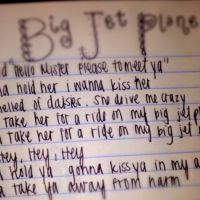 Big Jet Plane
d "hello Mister please to meet ya"
na hold her i wanna kiss her
melled of daisies. she drive me crazy
take her for a ride on my big jet pl
take her for a ride on my big jet
Hey, Hey, Hey
Hold ya gonna kiss ya in my a
a take ya away from harm